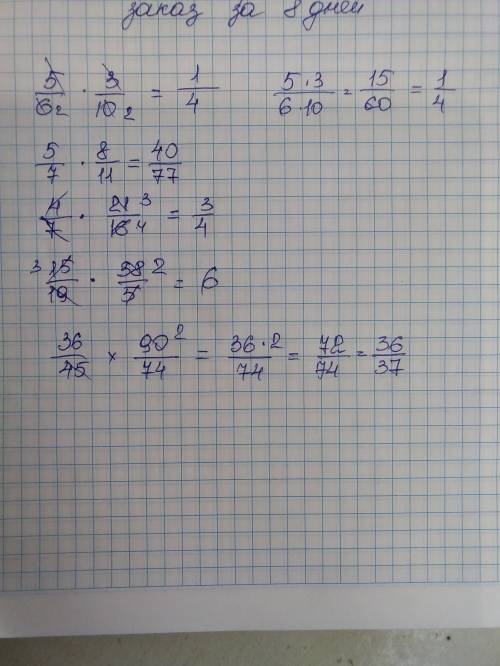 заказ за 8 дней
5/6 2 · 3/10 2 = 1/4    5·3/6·10 = 15/60 = 1/4
5/7 · 8/11 = 40/77
4/7 · 21 3/16 4 = 3/4
3 15/19 · 38 2/5 = 6
36/45 × 90 2/74 = 36·2/74 = 72/74 = 36/37